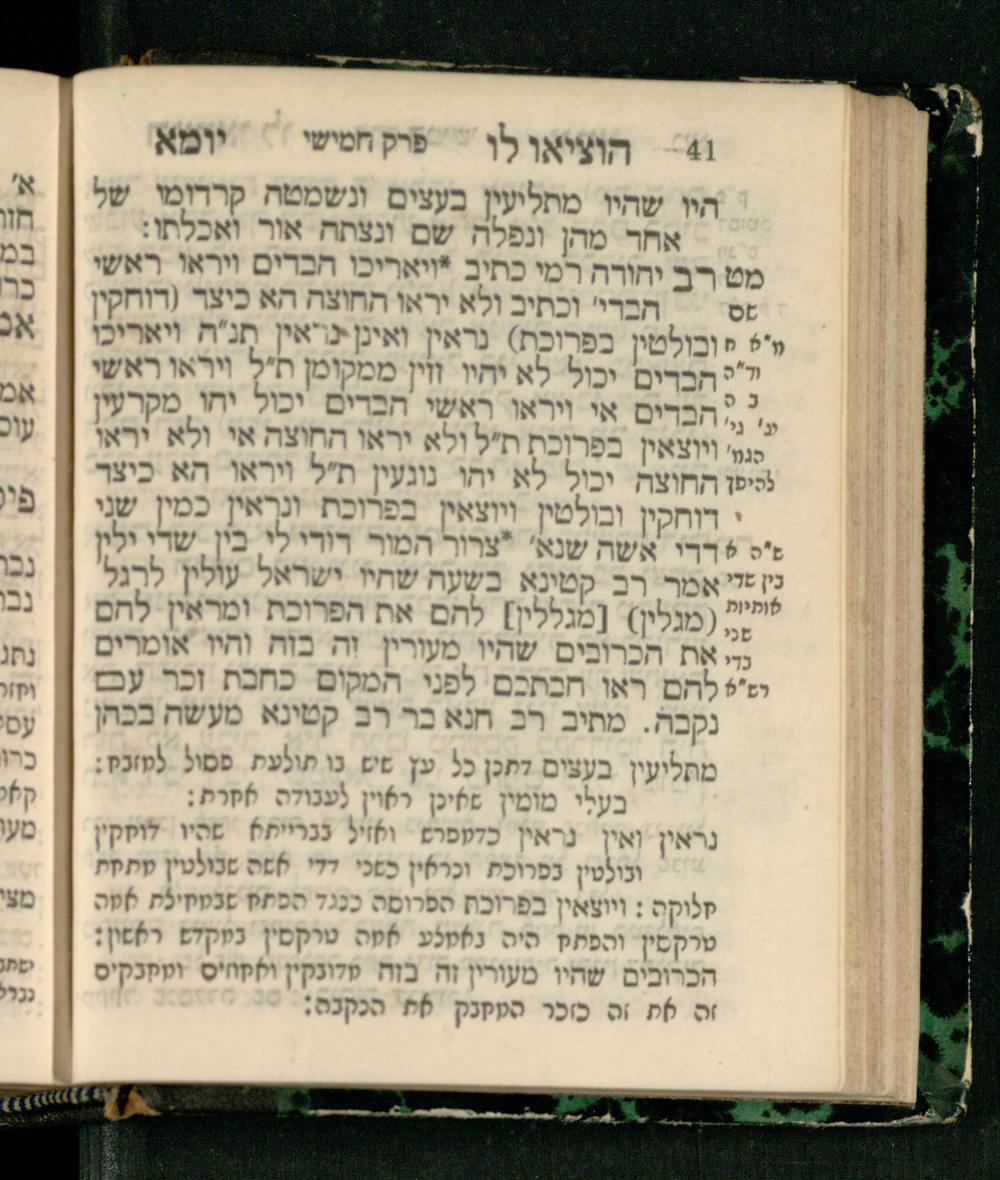 41 הוציאו לו פרק חמישי יומא
היו שהיו מתליעין בעצים ונשמטה קרדומו של
אחד מהן ונפלה שם ונצתה אור ואכלתו:
מט רב יהודה רמי כתיב *ויאריכו הבדים ויראו ראשי
שם הבדי' וכתיב ולא יראו החוצה הא כיצד (דוחקין
מ"א ח ובולטין בפרוכת) נראין ואינן נראין תנ"ה ויאריכו
וד"ה הבדים יכול לא יהיו זזין ממקומן ת"ל ויראו ראשי
ב ה הבדים אי ויראו ראשי הבדים יכול יהו מקרעין
ע' גי' ויוצאין בפרוכת ת"ל ולא יראו החוצה אי ולא יראו
הגמ' החוצה יכול לא יהו נוגעין ת"ל ויראו הא כיצד
להיפך
דוחקין ובולטין ויוצאין בפרוכת ונראין כמין שני
ש"ה א דדי אשה שנא' *צרור המור דודי לי בין שדי ילין
בין שדי אמר רב קטינא בשעה שהיו ישראל עולין לרגל
אותיות (מגלין) [מגללין] להם את הפרוכת ומראין להם
שני את הכרובים שהיו מעורין זה בזה והיו אומרים
בדי
רש"א להם ראו חבתכם לפני המקום כחבת זכר עם
נקבה. מתיב רב חנא בר רב קטינא מעשה בכהן
מתליעין בעצים דתנן כל עץ שיש בו תולעת פסול למזבח:
בעלי מומין שאינן ראוין לעבודה אחרת:
נראין ואין נראין כדמפרש ואזיל בברייתא שהיו דוחקין
ובולטין בפרוכת ונראין כשני דדי אשה שבולטין מתחת
חלוקה: ויוצאין בפרוכת הפרוסה כנגד הפתח שבמחילת אמה
טרקסין והפתח היה באמצע אמה טרקסין במקדש ראשון:
הכרובים שהיו מעורין זה בזה מדובקין ואחוזים ומחבקים
זה את זה כזכר המחבק את הנקבה: